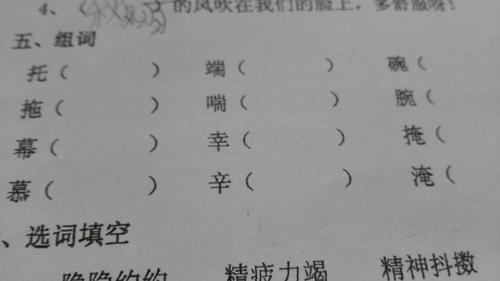 4、（ ）的风吹在我们的脸上，多舒服呀！
五、组词
托（ ） 端（ ） 碗（
拖（ ） 喘（ ） 腕（
幕（ ） 幸（ ） 掩（
慕（ ） 辛（ ） 淹（
、选词填空
隐隐约约 精疲力竭 精神抖擞